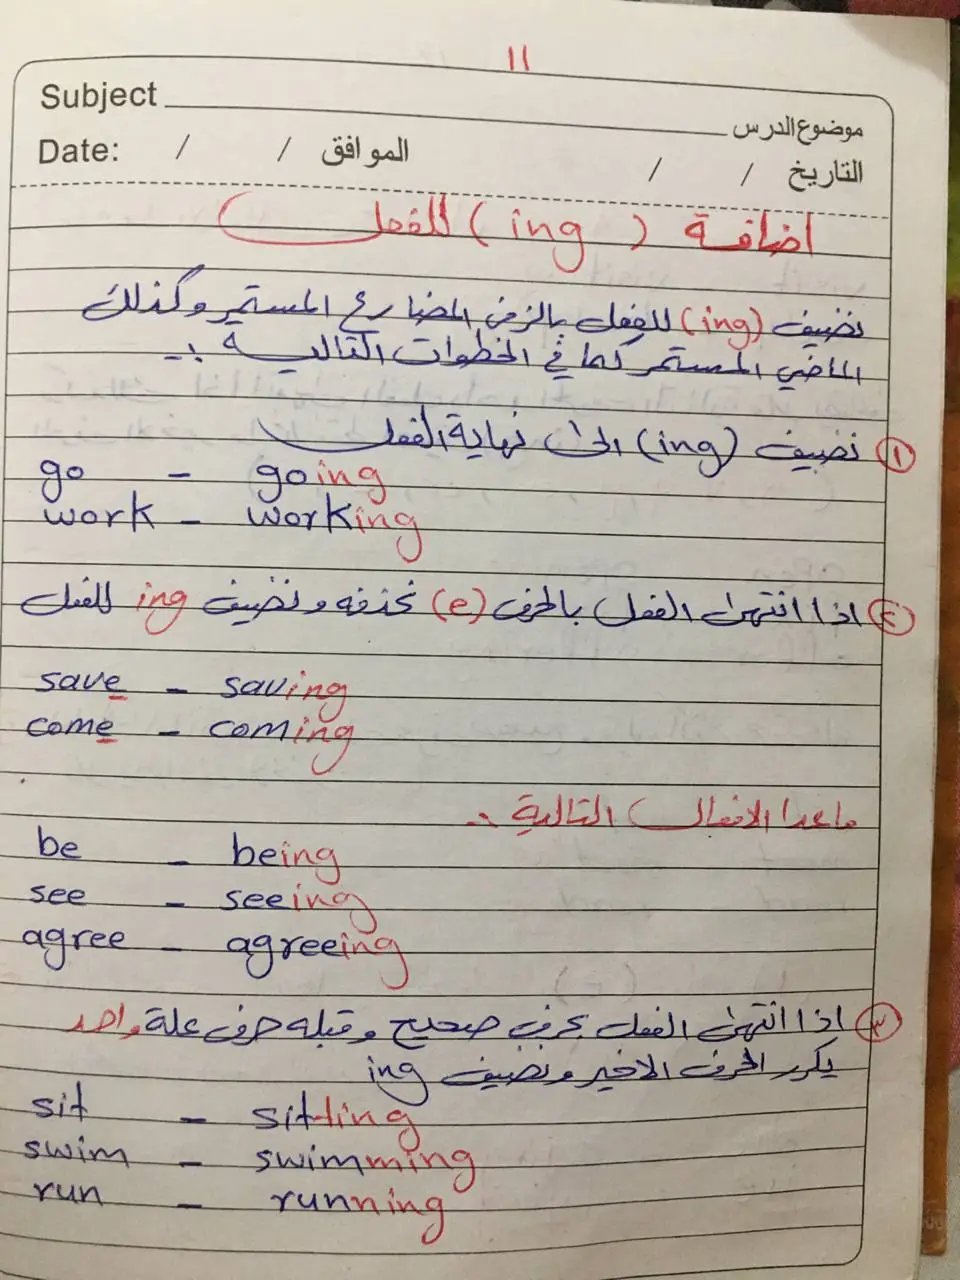 ١١
Subject موضوع الدرس
Date: / / الموافق / / التاريخ
اضافة (ing) للفعل
نضيف (ing) للفعل بالزمن المضارع المستمر وكذلك
الماضي المستمر كما في الخطوات التالية :-
١ نضيف (ing) الى نهاية الفعل
go - going
work - working
٢ اذا انتهى الفعل بالحرف (e) نحذفه ونضيف ing للفعل
save - saving
come - coming
ماعدا الافعال التالية :-
be - being
see - seeing
agree - agreeing
٣ اذا انتهى الفعل بحرف صحيح وقبله حرف علة واحد
يكرر الحرف الاخير ونضيف ing
sit - sitting
swim - swimming
run - running